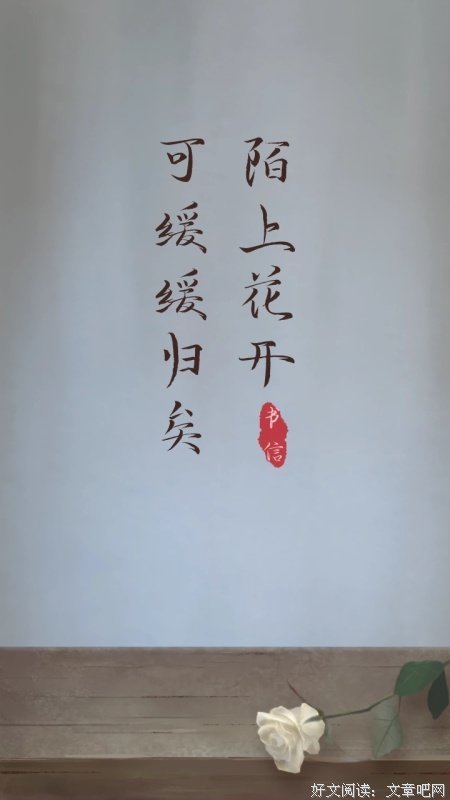 陌上花开
可缓缓归矣
书信
好文阅读：文章吧网